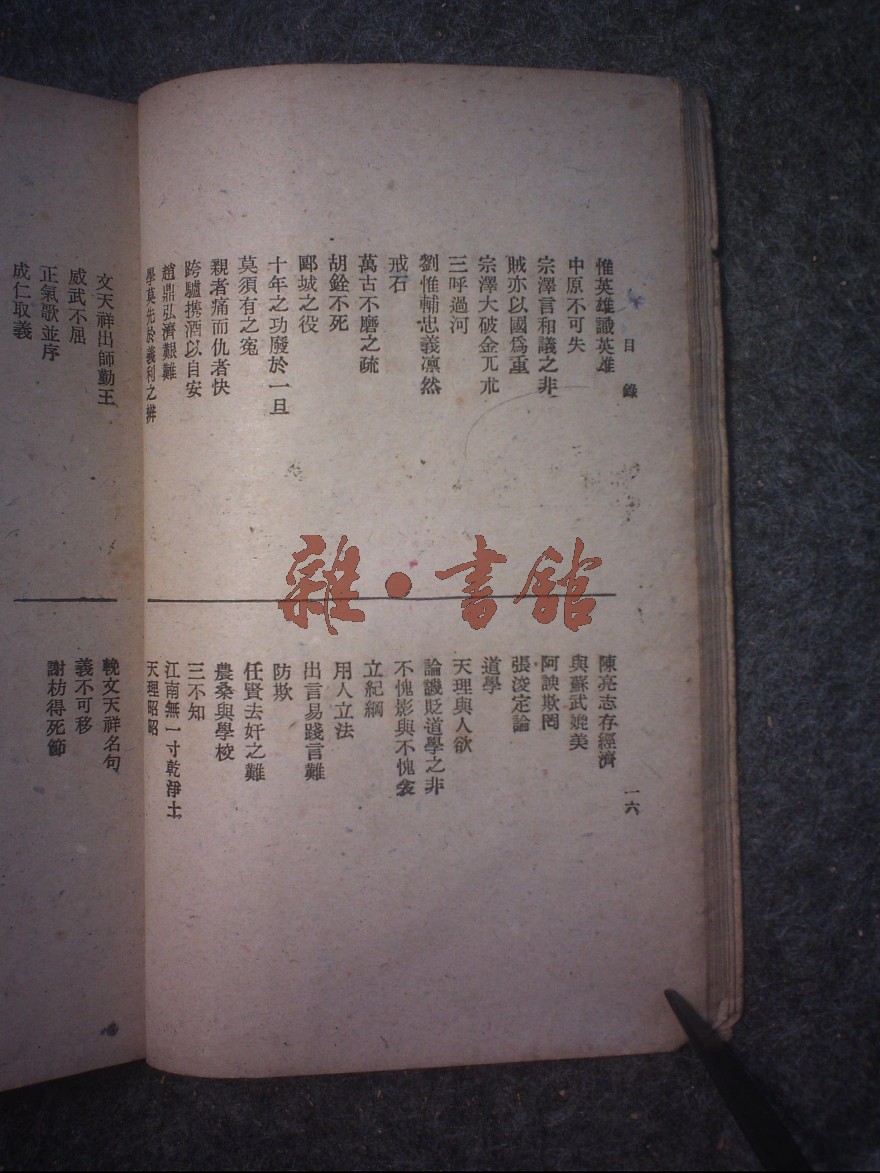 目錄
一六
惟英雄識英雄
中原不可失
宗澤言和議之非
賊亦以國爲重
宗澤大破金兀朮
三呼過河
劉惟輔忠義凛然
戒石
萬古不磨之疏
胡銓不死
郾城之役
十年之功廢於一旦
莫須有之寃
親者痛而仇者快
跨驢携酒以自安
趙鼎弘濟艱難
學莫先於義利之辨
陳亮志存經濟
與蘇武媲美
阿諛欺罔
張浚定論
道學
天理與人欲
論譏貶道學之非
不愧影與不愧衾
立紀綱
用人立法
出言易踐言難
防欺
任賢去奸之難
農桑與學校
三不知
江南無一寸乾淨土
天理昭昭
文天祥出師勤王
威武不屈
正氣歌並序
成仁取義
輓文天祥名句
義不可移
謝枋得死節
雜·書館